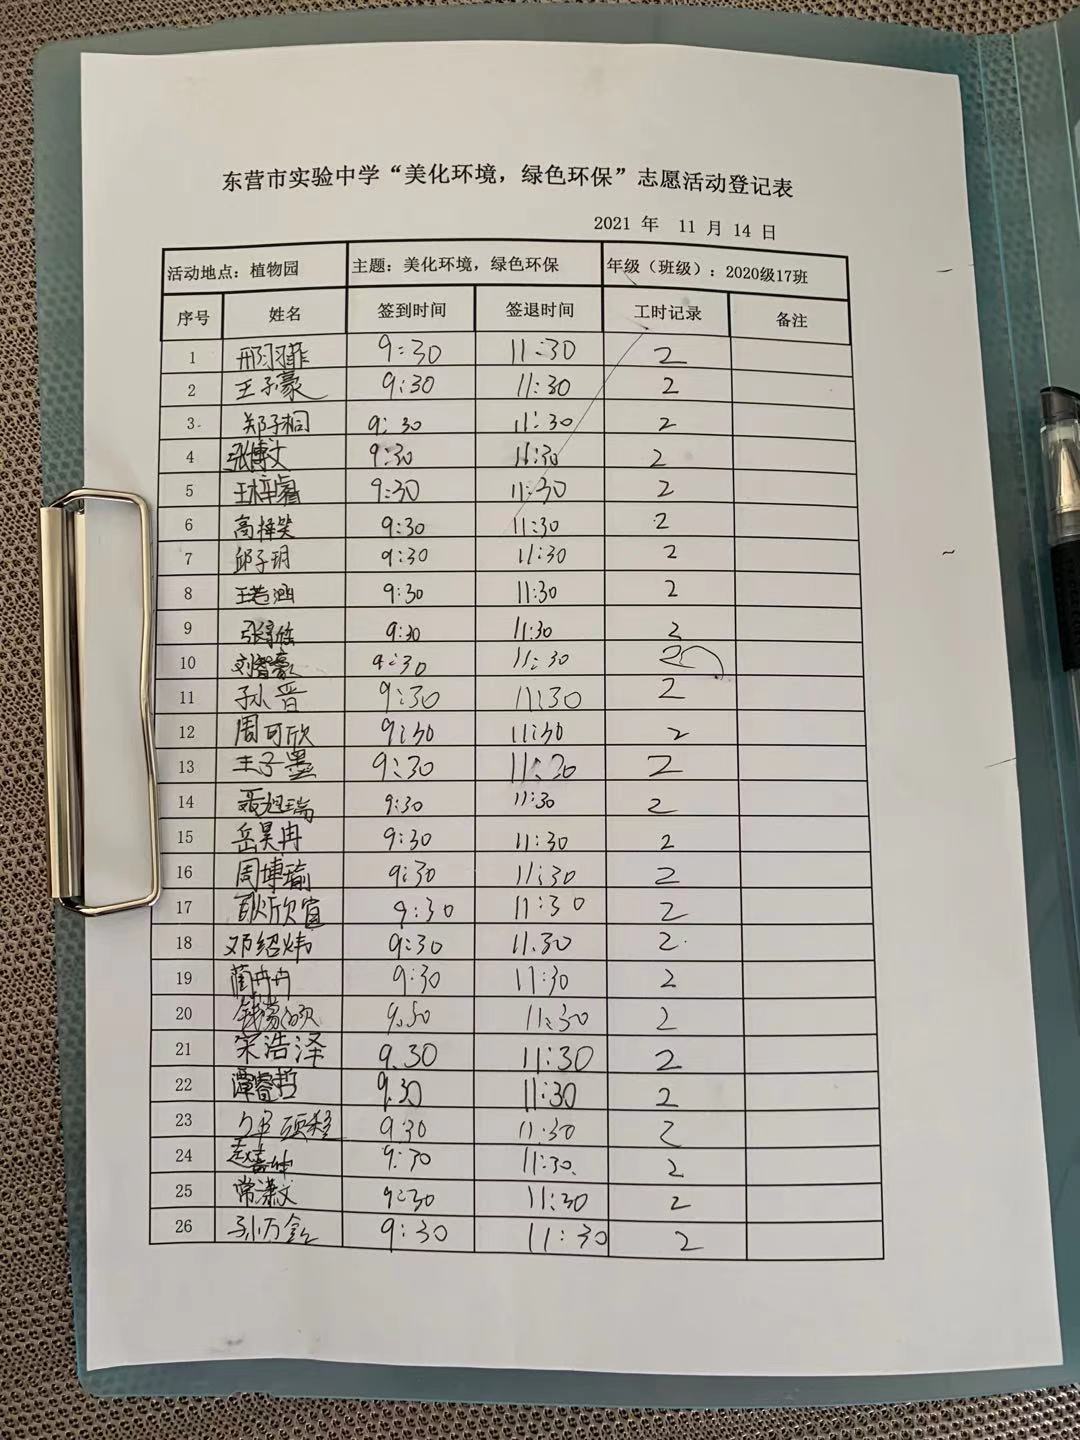 东营市实验中学“美化环境，绿色环保”志愿活动登记表
2021 年 11 月 14 日
活动地点：植物园 主题：美化环境，绿色环保 年级（班级）：2020级17班
序号 姓名 签到时间 签退时间 工时记录 备注
1 邢羽菲 9:30 11:30 2
2 王子豪 9:30 11:30 2
3 郑子桐 9:30 11:30 2
4 张博文 9:30 11:30 2
5 王梓霜 9:30 11:30 2
6 高择笑 9:30 11:30 2
7 邱子玥 9:30 11:30 2
8 王若涵 9:30 11:30 2
9 9:30 11:30 2
10 刘智豪 9:30 11:30 2
11 孙晋 9:30 11:30 2
12 周可欣 9:30 11:30 2
13 王子墨 9:30 11:30 2
14 聂旭瑞 9:30 11:30 2
15 岳昊冉 9:30 11:30 2
16 周博瑜 9:30 11:30 2
17 耿欣宜 9:30 11:30 2
18 邓绍炜 9:30 11.30 2
19 蔺冉冉 9:30 11:30 2
20 9.30 11:30 2
21 宋浩泽 9.30 11:30 2
22 谭睿哲 9.30 11:30 2
23 9:30 11:30 2
24 9:30 11:30 2
25 常潇文 9:30 11:30 2
26 9:30 11:30 2